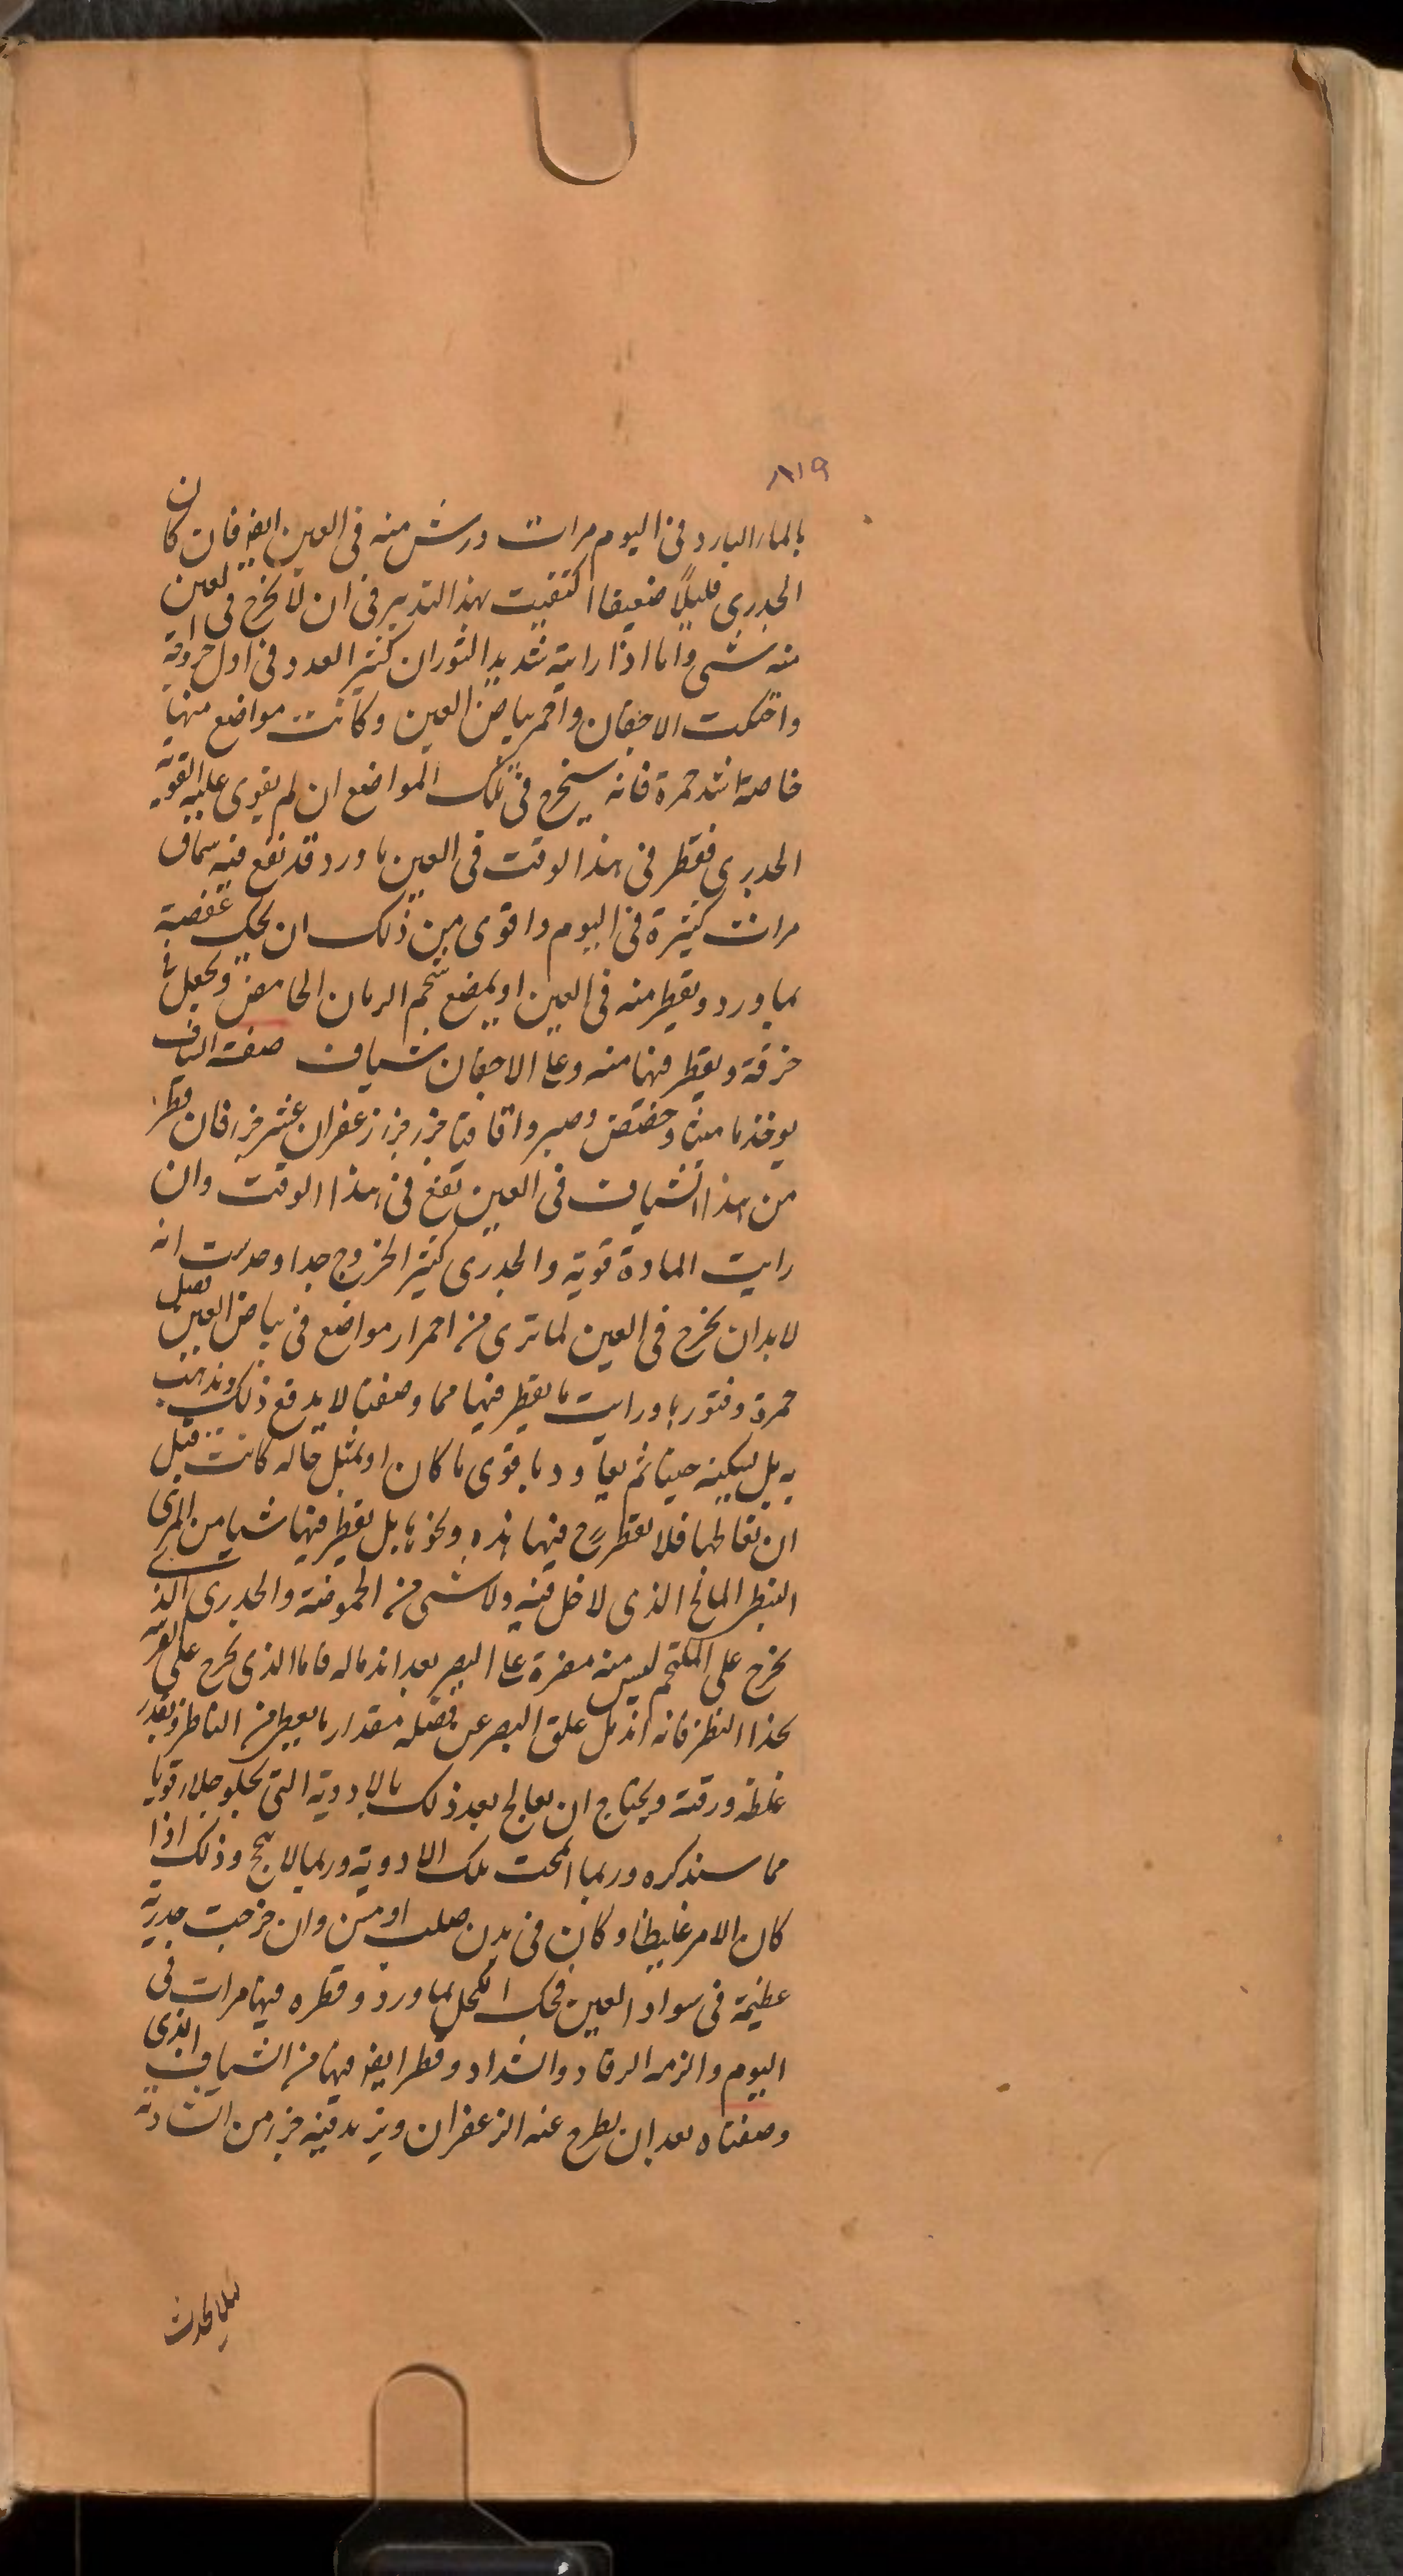 ٨١٩
بالماء البارد فى اليوم مرات ورش منه فى العين ايضا فان كان
الجدرى قليلا ضعيفا اكتفيت بهذا التدبير فى ان لا يخرج فى العين
منه شى واما اذا رايته شديد الثوران كثير العدد فى اول خروجه
واحتكت الاجفان واحمر بياض العين وكانت مواضع منها
خاصة اشد حمرة فانه سيخرج فى تلك المواضع ان لم يقوى عليه القوة
الجدرى فقطر فى هذا الوقت فى العين ماورد قد نقع فيه سماق
مرات كثيرة فى اليوم واقوى من ذلك ان يحك عفصة
بماورد ويقطر منه فى العين او يمضع شحم الرمان الحامض ويجعل فى
خرقة ويقطر فيها منه وعلى الاجفان شياف صفته الشياف
يوخذ ماميثا وحضض وصبر واقاقيا جزء جزء زعفران عشر جزء فان قطر
من هذا الشياف فى العين نفع فى هذا الوقت وان
رايت المادة قوية والجدرى كثير الخروج جدا وحدست انه
لابد ان يخرج فى العين لما ترى من احمرار مواضع فى بياض العين بفضل
حمرة ونتور بها ورايت ما يقطر فيها مما وصفنا لا يدفع ذلك ويذهب
به بل يسكنه حينا ثم يعاود باقوى ما كان او بمثل حاله كانت قبل
ان تعالجها فلا تقطر ح فيها هذه ونحوها بل يقطر فيها شيا من المرى
النبطى المالح الذى لا خل فيه ولا شى من الحموضة والجدرى الذى
يخرج على الملتحم ليس منه مضرة على البصر بعد اندماله فاما الذى يخرج على القرنية
بحذا النظر فانه اندمل علق البصر عن فضله مقدار ما يغطى من الناظر وبقدر
غلظه ورقته ويحتاج ان يعالج بعد ذلك بالادوية التى تجلو جلاء قويا
مما سنذكره وربما انجحت تلك الادوية وربما لا ينجح وذلك اذا
كان الامر غليظا وكان فى بدن صلب او مسن وان خرجت جدرية
عظيمة فى سواد العين فحك الكحل بماورد وقطره فيها مرات فى
اليوم والزمه الرفاد والشداد وقطر ايضا فيها من الشياف الذى
وصفناه بعد ان يطرح عنه الزعفران ويزيد فيه جزء من الشادنه
ليلا يحدث